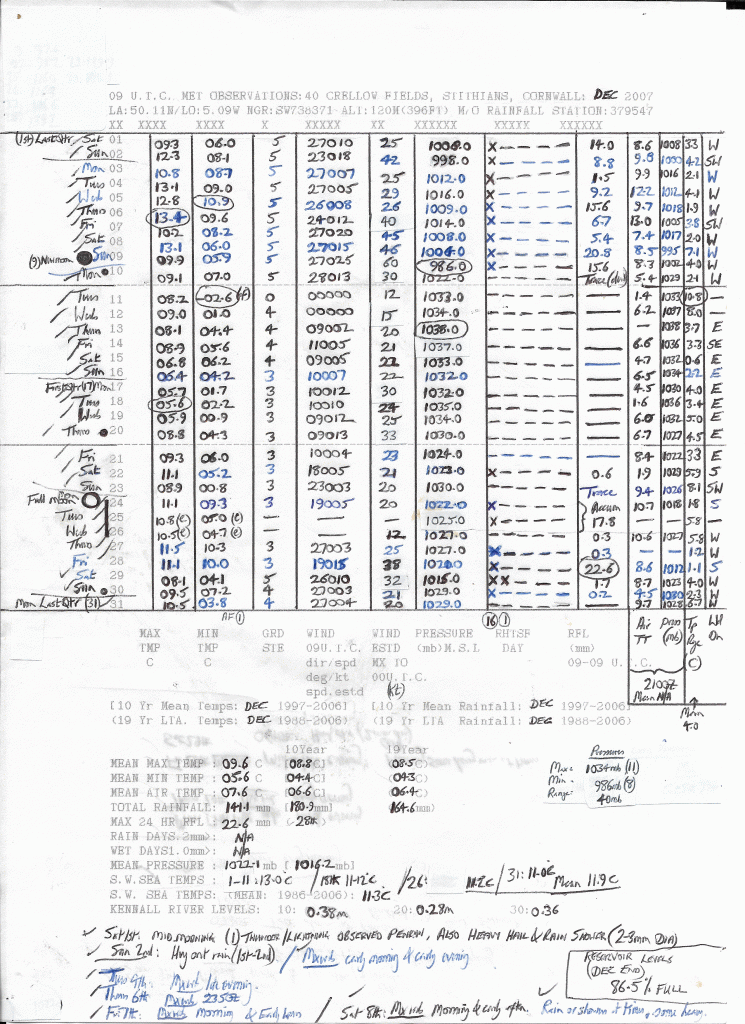 09 U.T.C. MET OBSERVATIONS:40 CRELLOW FIELDS, STITHIANS, CORNWALL: DEC 2007
LA:50.11N/LO:5.09W NGR:SW738371 ALT:120M(396FT) M/O RAINFALL STATION:379547
XX XXXX XXXX X XXXXX XX XXXXXX XXXXX XXXXXX
(1st) Last Qtr Sat 01 09.3 06.0 5 27010 25 1006.0 X 14.0 8.6 1008 3.3 W
Sun 02 12.3 08.1 5 23018 42 998.0 X 8.8 SW
Mon 03 10.8 08.7 5 27007 25 1012.0 X 1.5 9.9 1016 2.1 W
Tues 04 13.1 09.0 5 27005 29 1016.0 X 9.2 12.2 1012 4.1 W
Wed 05 12.8 10.9 5 26008 26 1009.0 X 15.6 9.7 1018 1.9 W
Thurs 06 13.4 09.6 5 24012 40 1014.0 X 6.7 13.0 1005 3.8 SW
Fri 07 10.2 08.2 5 27020 45 1008.0 X 5.4 7.4 1017 2.0 W
Sat 08 13.1 06.0 5 27015 46 1004.0 X 20.8 8.5 995 7.1 W
(9) New moon Sun 09 09.9 05.9 5 27025 60 986.0 X 15.6 8.3 1002 4.0 W
Mon 10 09.1 07.0 5 28013 30 1022.0 Trace 5.4 1029 2.1 W
Tues 11 08.2 -02.6 (A) 0 00000 12 1033.0 — 1.4 1033 10.8 —
Wed 12 09.0 01.0 4 00000 15 1034.0 — 6.2 1037 8.0 —
Thurs 13 08.1 04.4 4 09002 20 1038.0 — — 1038 3.7 E
Fri 14 08.9 05.6 4 11005 21 1037.0 — 6.6 1036 3.3 SE
Sat 15 06.8 06.2 4 09005 22 1033.0 — 4.7 1032 0.6 E
Sun 16 06.4 04.2 3 10007 22 1032.0 — 6.5 1034 2.2 E
First Qtr (17) Mon 17 05.7 01.7 3 10012 30 1032.0 — 4.5 1030 4.0 E
Tues 18 05.6 02.2 3 10010 24 1035.0 — 1.6 1036 3.4 E
Wed 19 05.9 00.9 3 09012 25 1034.0 — 6.0 1032 5.0 E
Thurs 20 08.8 04.3 3 09013 33 1030.0 — 6.7 1027 4.5 E
Fri 21 09.3 06.0 3 10004 23 1024.0 — 8.4 1022 3.3 E
Sat 22 11.1 05.2 3 18005 21 1023.0 X 0.6 1.9 1029 5.9 S
Sun 23 08.9 00.8 3 23003 20 1030.0 Trace 9.4 1026 8.1 SW
Full moon 24 11.1 09.3 3 19005 20 1022.0 X Accum 10.7 1018 1.8 S
Tues 25 10.8 (e) 05.0 (e) — — — 1025.0 X 17.8 — — 5.8 —
Wed 26 10.5 (e) 04.7 (e) — — 12 1027.0 X 0.3 10.6 1027 5.8 W
Thurs 27 11.5 10.3 3 27003 25 1027.0 X 0.3 — — 1.2 W
Fri 28 11.1 10.0 3 19015 38 1020.0 X 22.6 8.6 1012 1.1 S
Sat 29 08.1 04.1 5 26010 32 1015.0 XX 1.7 8.7 1023 4.0 W
Sun 30 09.5 07.2 4 27003 21 1029.0 X 0.2 4.5 1030 2.3 W
Mon Last Qtr (31) 31 10.5 03.8 4 27004 20 1029.0 — 9.7 1028 6.7 W
AF(1) (16) (1)
MAX MIN GRD WIND WIND PRESSURE RHTSF RFL Air TT Press (mb) Tp Rge (C) WH Dn
TMP TMP STE 09U.T.C. ESTD (mb)M.S.L DAY (mm)
C C dir/spd MX TO 09-09 U.T.C.
deg/kt 00U.T.C. 2100Z
spd.estd (kt) Mean N/A
[10 Yr Mean Temps: DEC 1997-2006] [10 Yr Mean Rainfall: DEC 1997-2006]
(19 Yr LTA. Temps: DEC 1988-2006) (19 Yr LTA Rainfall: DEC 1988-2006)
Mean 4.0
10Year 19Year
MEAN MAX TEMP : 09.6 C [08.8 C] (08.5 C)
MEAN MIN TEMP : 05.6 C [04.4 C] (04.3 C)
MEAN AIR TEMP : 07.6 C [06.6 C] (06.4 C)
TOTAL RAINFALL: 141.1 mm [180.9mm] (164.6mm)
MAX 24 HR RFL : 22.6 mm (28th)
RAIN DAYS.2mm>: N/A
WET DAYS1.0mm>: N/A
MEAN PRESSURE : 1022.1 mb [1016.2mb]
Pressures
Max: 1034mb (11)
Min - 986mb (9)
Range: 40mb
S.W.SEA TEMPS : 1-11:13.0°C / 18th 11.2°C / 26: 11.2C / 31: 11.0°C Mean 11.9C
S.W. SEA TEMPS: (MEAN: 1986-2006): 11.3C
KENNALL RIVER LEVELS: 10: 0.38m 20: 0.28m 30: 0.36
Sat 1st: MID MORNING (1)-THUNDER/LIGHTNING OBSERVED PENRYN, ALSO HEAVY HAIL & RAIN SHOWER (2-3mm DIA)
Sun 2nd: Hvy ont rain (1st-2nd). / early morning & early evening
Tues 4th: late evening.
Thurs 6th 2355Z
Fri 7th: Morning & / Sat 8th: Morning & early aftn. Rain or showers at times, some heavy.
RESERVOIR LEVELS
(DEC END)
86.5% FULL